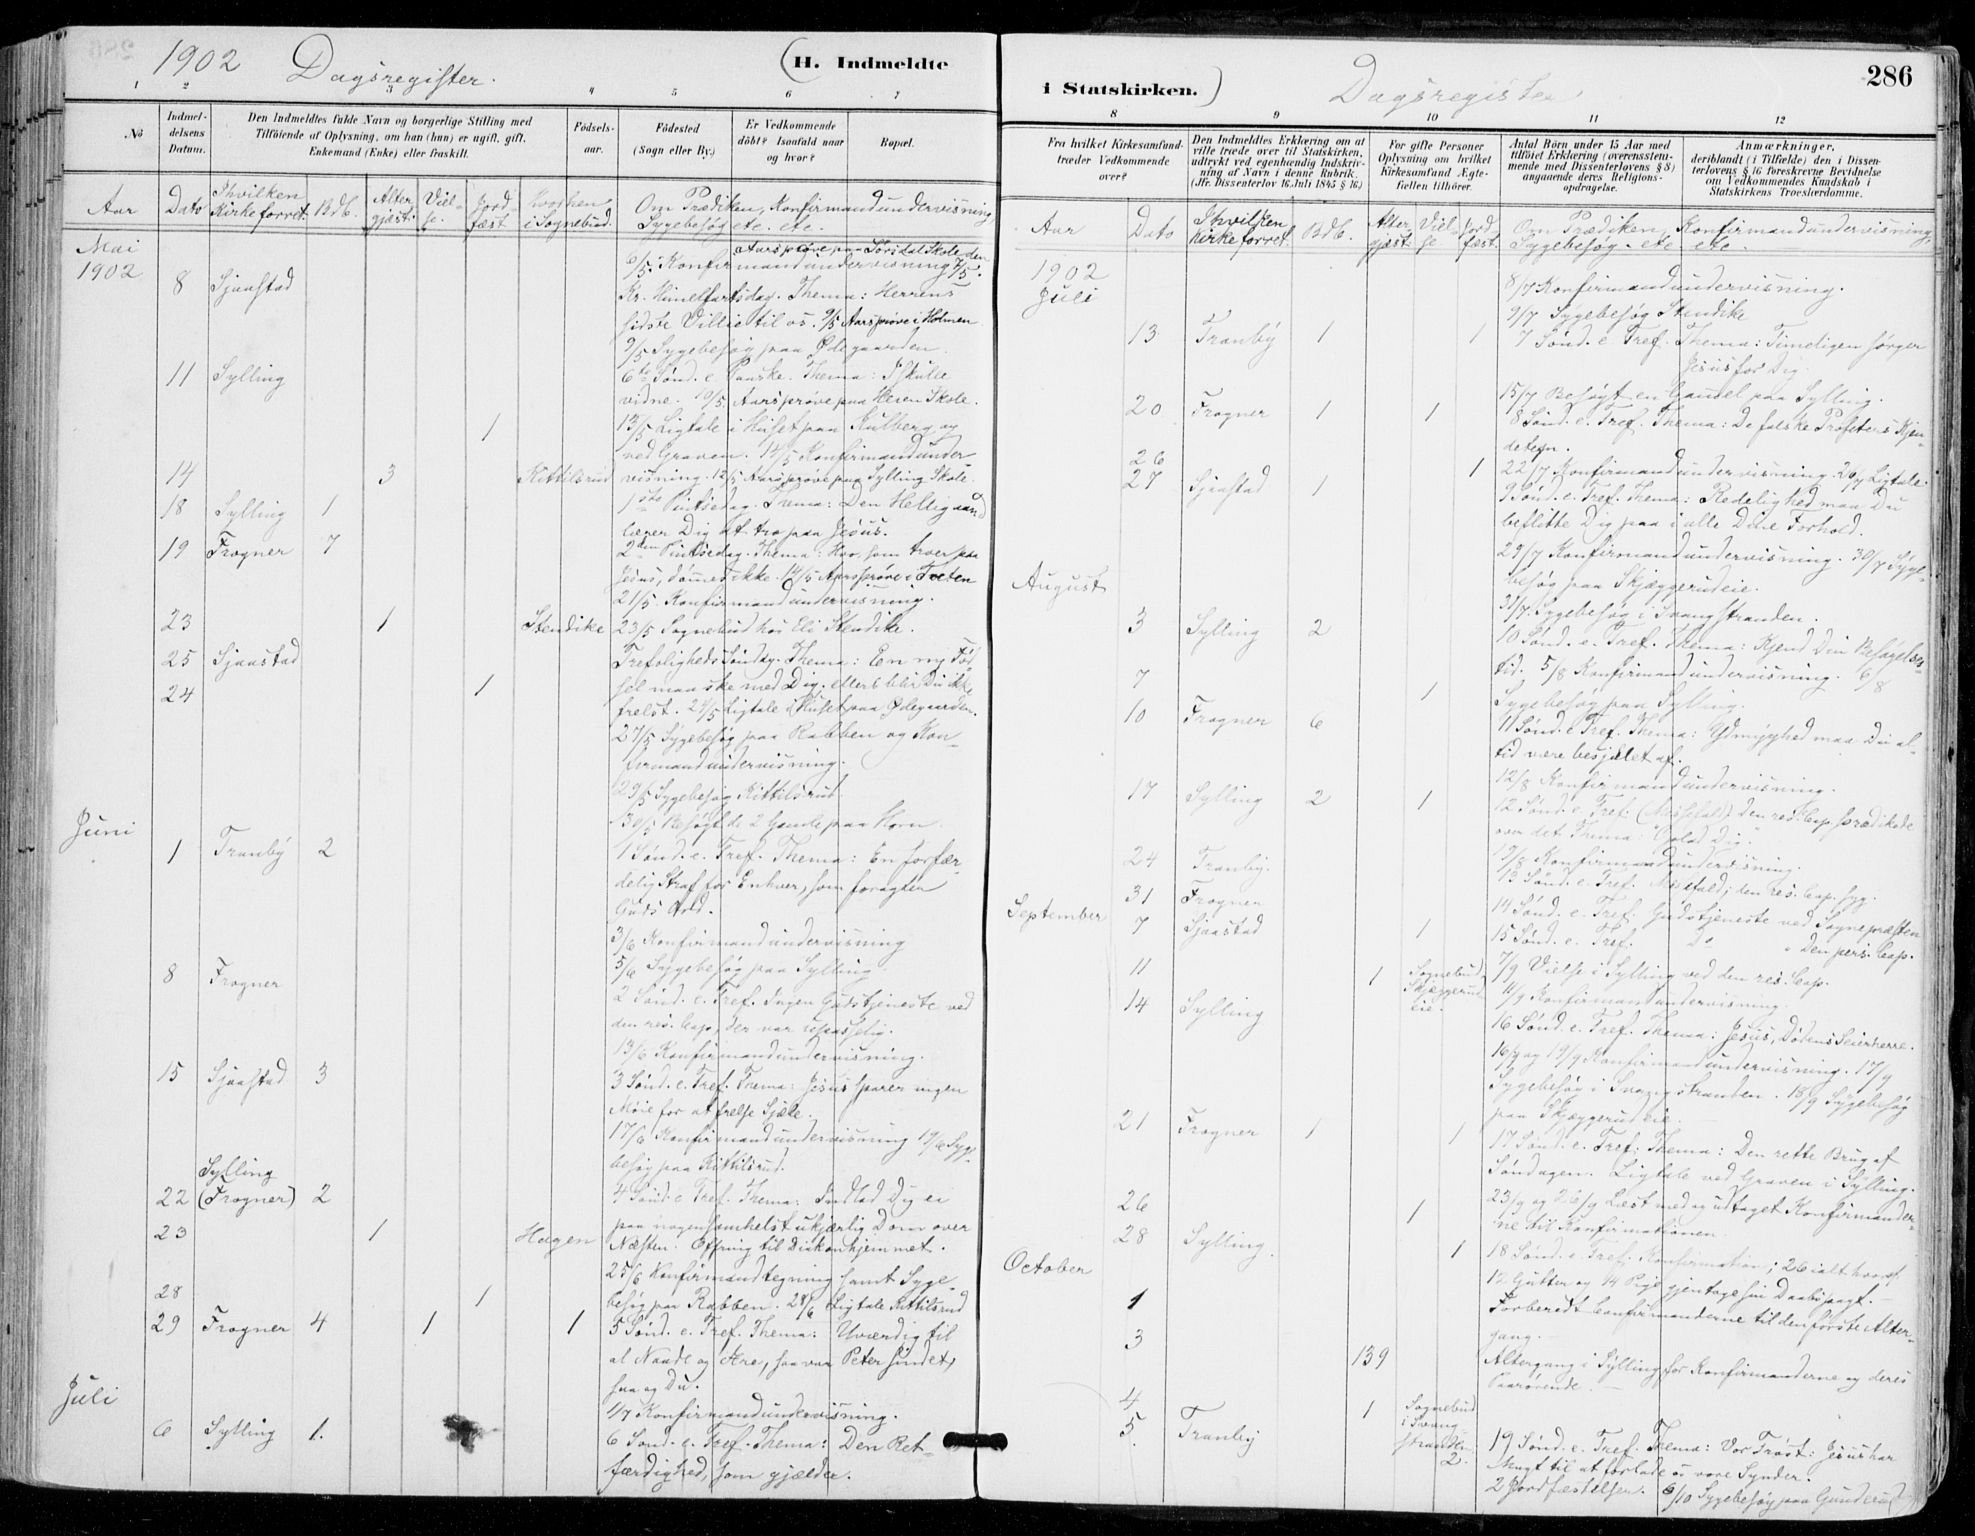 1902 Dagsregister.
(H. Indmeldte
1 2 3 4 5 6 7
No
Indmeldelsens Datum.
Den Indmeldtes fulde Navn og borgerlige Stilling med
Tilføiende af Oplysning, om han (hun) er ugift, gift,
Enkemand (Enke) eller fraskilt.
Fødselsaar.
Fødested
(Sogn eller By.)
Er Vedkommende
døbt? Isaafald naar
og hvor?
Bopæl.
Aar Dato I hvilken Kirke forret. BdC. Alter gjæst. Viel-se. Jord fæst Hvorhen i Sognebud. Om Prædiken, Konfirmandundervisning, Sygebesøg etc. etc.
Mai
1902
Aarsprøve paa Sørsdal Skole den
6/5. Konfirmandundervisning 7/5.
8 Sjaastad Kr. Himelfartsdag. Thema: Herrens
sidste Villie til os. 9/5 Aarsprøve i Holmen
9/5 Sygebesøg paa Ødegaarden.
11 Sylling 6te Sønd. e. Paaske. Thema: I skulle
vidne. 10/5. Aarsprøve paa Heien Skole.
1 13/5 Ligtale i Huset paa Kulberg og
ved Graven. 14/5 Konfirmandunder-
14 3 Kittilsrud visning. 12/5 Aarsprøve paa Sylling Skole.
18 Sylling 1 1ste Pintsedag. Thema: Den Hellig aand
lærer Dig at tro paa Jesus.
19 Frogner 7 2den Pintsedag. Thema: Hvo, som troer paa
Jesus, dømmes ikke. 14/5 Aarsprøve i Tveten
21/5. Konfirmandundervisning.
23 1 Stendike 23/5 Sognebud hos Eli Stendike.
25 Sjaastad Trefoligheds Søndag. Thema: En ny Fød-
24 1 sel maa ske med Dig, ellers blir Du ikke
frelst. 24/5 Ligtale i Huset paa Ødegaarden.
27/5 Sygebesøg paa Rabben og Kon-
firmandundervisning.
29/5 Sygebesøg Kittilsrud
30/5 Besøgt de 2 Gamle paa Horn.
Juni
1 Tranby 2 1 Sønd. e. Tref. Thema: En forfær-
delig Straf for Enhver, som foragter
Guds Ord.
3/6 Konfirmandundervisning
5/6 Sygebesøg paa Sylling.
8 Frogner 2 Sønd. e. Tref. Ingen Gudstjeneste ved
den res. Cap, der var upasselig.
13/6 Konfirmandundervisning.
15 Sjaastad 3 3 Sønd. e. Tref. Thema: Jesus sparer ingen
Møie for at frelse Sjæle.
17/6 Konfirmandundervisning 19/6 Syge-
besøg paa Kittilsrud.
Sylling
22 (Frogner) 2 4 Sønd. e Tref. Thema: Indlad Dig ei
paa nogensomhelst ukjærlig Dom over
23 1 Hagen Næsten. Offring til Diakonhjemmet.
25/6 Konfirmandtegning samt Syge-
28 1 besøg paa Rabben. 28/6 Ligtale Kittilsrud
29 Frogner 4 1 1 5 Sønd. e. Tref. Thema: Uværdig til
al Naade og Ære, saa var Peter sindet,
saa og Du.
Juli
1/7 Konfirmandundervisning.
6 Sylling 1. 6 Sønd. e. Tref. Thema: Den Ret-
færdighed, som gjælder.
i Statskirken.)
Dagsregister
286
8 9 10 11 12
Fra hvilket Kirkesamfund
træder Vedkommende
over?
Den Indmeldtes Erklæring om at
ville træde over til Statskirken,
udtrykt ved egenhændig Indskriv-
ning af Navn i denne Rubrik.
(Jfr. Dissenterlov 16.Juli 1845 § 16.)
For gifte Personer
Oplysning om hvilket
Kirkesamfund Ægte-
fællen tilhører.
Antal Børn under 15 Aar med
tilføiet Erklæring (overensstem-
mende med Dissenterlovens § 8)
angaaende deres Religions-
opdragelse.
Anmærkninger,
deriblandt (i Tilfælde) den i Dissen-
terlovens § 16 foreskrevne Bevidnelse
om Vedkommendes Kundskab i
Statskirkens Troeslærdomme.
Aar Dato I hvilken Kirke forret. BdC. Alter gjæst. Viel-se Jord fæst. Om Prædiken, Konfirmandundervisning, Sygebesøg. etc etc.
1902
Juli
8/7 Konfirmandundervisning.
9/7 Sygebesøg Stendike
13 Tranby 1 1 7 Sønd. e. Tref. Thema: Timeligen sørger
Jesus for Dig.
15/7 Besøgt en Gammel paa Sylling.
20 Frogner 1 1 8 Sønd. e. Tref. Thema: De falske Profeters Kjen-
detegn.
26 1 22/7 Konfirmandundervisning. 26/7 Ligtale.
27 Sjaastad 1 9 Sønd. e. Tref. Thema: Redelighed maa Du
beflitte Dig paa i alle Dine Forhold.
29/7 Konfirmandundervisning. 30/7 Syge-
besøg paa Skjæggerudeie.
August
31/7. Sygebesøg i Svangstranden.
3 Sylling 2 10 Sønd. e. Tref. Thema: Kjend Din Besøgelses-
tid. 5/8 Konfirmandundervisning. 6/8
7 1 Sygebesøg paa Sylling.
10 Frogner 6 11 Sønd. e Tref. Thema: Ydmyghed maa Du al-
tid være besjælet af.
12/8 Konfirmandundervisning.
17 Sylling 2 1 12 Sønd. e Tref. (Missefald) den res. Cap. prædikede
over det Thema: "Oplad Dig."
19/8 Konfirmandundervisning.
24 Tranby. 13 Sønd. e. Tref. Messefald; den res. Cap. syg.
31 Frogner 14 Sønd. e. Tref. Gudstjeneste ved Sognepræsten
September 7 Sjaastad 1 15 Sønd. e. Tref. Do " Den pers. Cap.
7/9 Vielse i Sylling ved den res. Cap.
11 1 Sognebud Skjæggerudeie. 11/9 Konfirmandundervisning.
14 Sylling 16 Sønd. e. Tref. Thema: Jesus, Dødens Seierherre.
16/9 og 19/9 Konfirmandundervisning. 17/9
Sygebesøg i Svangstranden. 18/9 Sygebesøg
paa Skjæggerudeie.
21 Frogner 1 1 17 Sønd. e. Tref. Thema: Den rette Brug af
Søndagen. Ligtale ved Graven i Sylling.
26 1 23/9 og 26/9 Læst med og udtaget Konfirmander-
ne til Konfirmationen.
28 Sylling. 1 18 Sønd. e. Tref. Konfirmation; 26 ialt hvoraf
12 Gutter og 14 Piger gjentoge sin Daabspagt.
October
1 Forberedt Confirmanderne til den første Alter-
gang.
3 139 Altergang i Sylling for Konfirmanderne og deres
Paarørende.
4 1 Sognebud i Svangstranden
5. Tranby 2. 19 Sønd. e. Tref. Thema: Vor Trøst: Jesus har
Magt til at forlade os vore Synder.
2 Jordfæstelsen. 6/10 Sygebesøg paa Gunderud